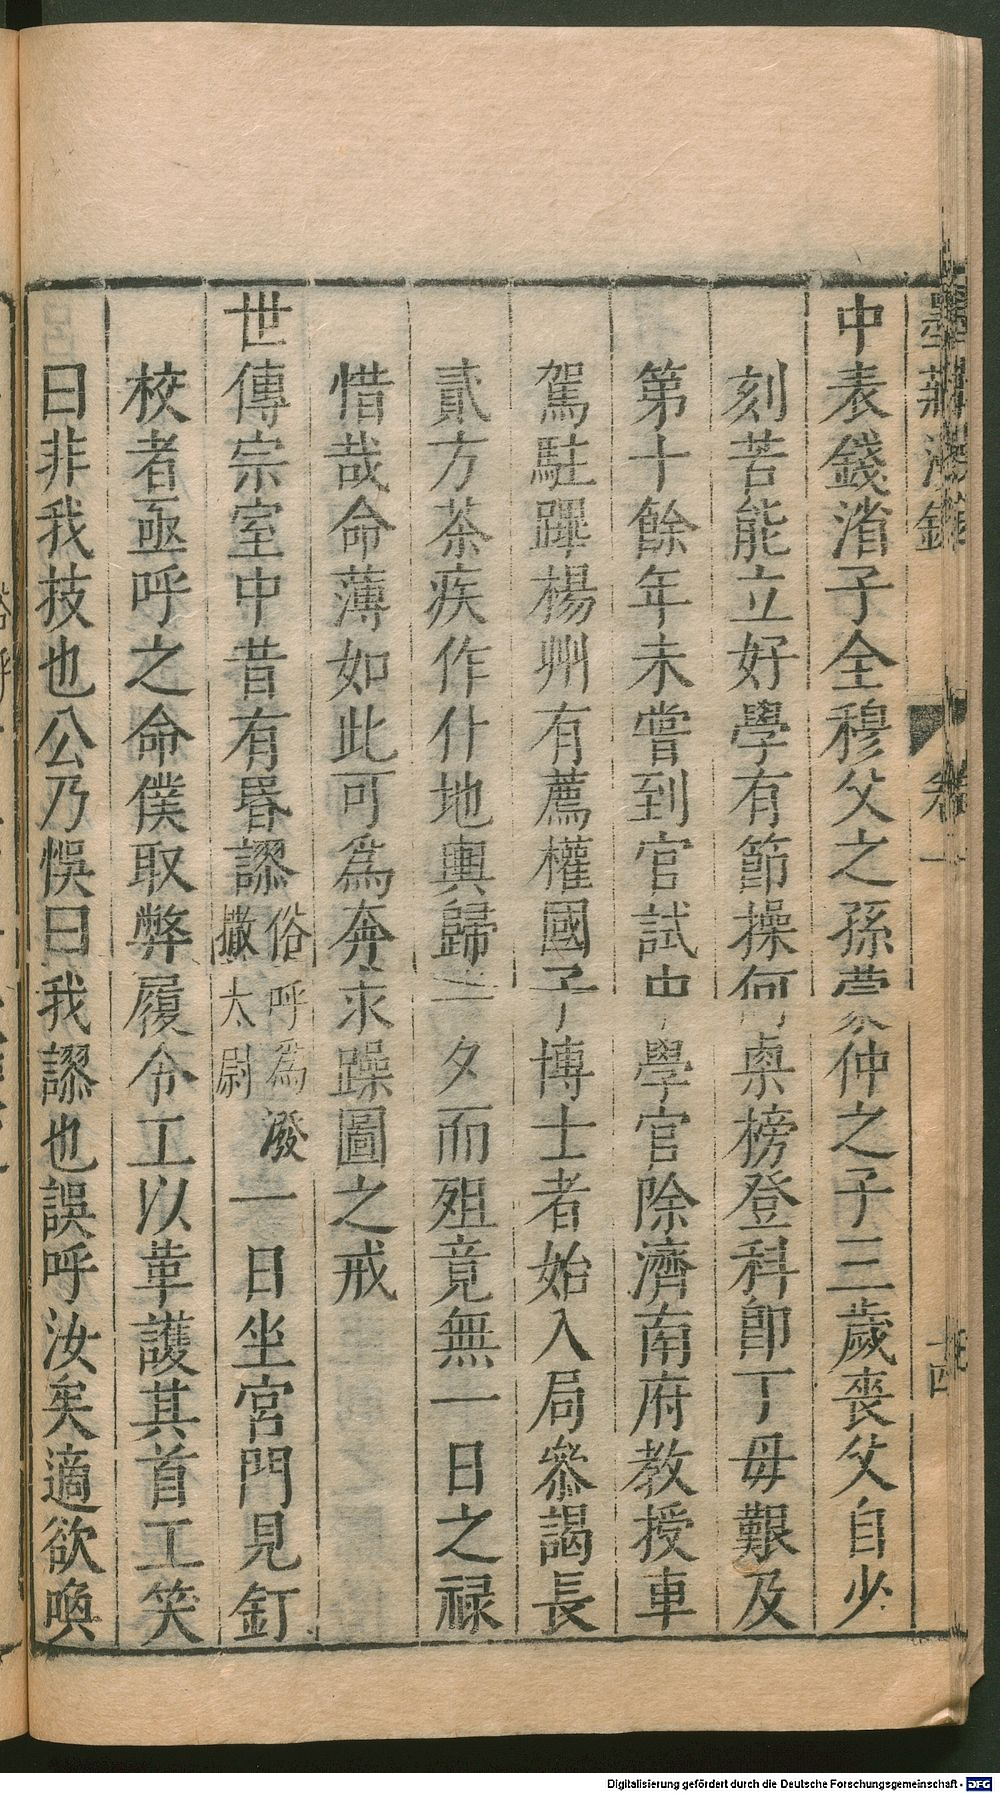 墨莊漫錄 卷一 十四
中表錢湞子全穆父之孫蒙仲之子三歲喪父自少
刻苦能立好學有節操何㮚榜登科卽丁母艱及
第十餘年未嘗到官試中學官除濟南府教授車
駕駐蹕楊州有薦權國子博士者始入局叅謁長
貳方茶疾作仆地輿歸一夕而殂竟無一日之祿
惜哉命薄如此可爲奔求躁圖之戒
世傳宗室中昔有昬謬俗呼爲潑撒太尉一日坐宮門見釘
校者亟呼之命僕取弊履令工以革護其首工笑
曰非我技也公乃悞曰我謬也誤呼汝矣適欲喚
Digitalisierung gefördert durch die Deutsche Forschungsgemeinschaft - DFG